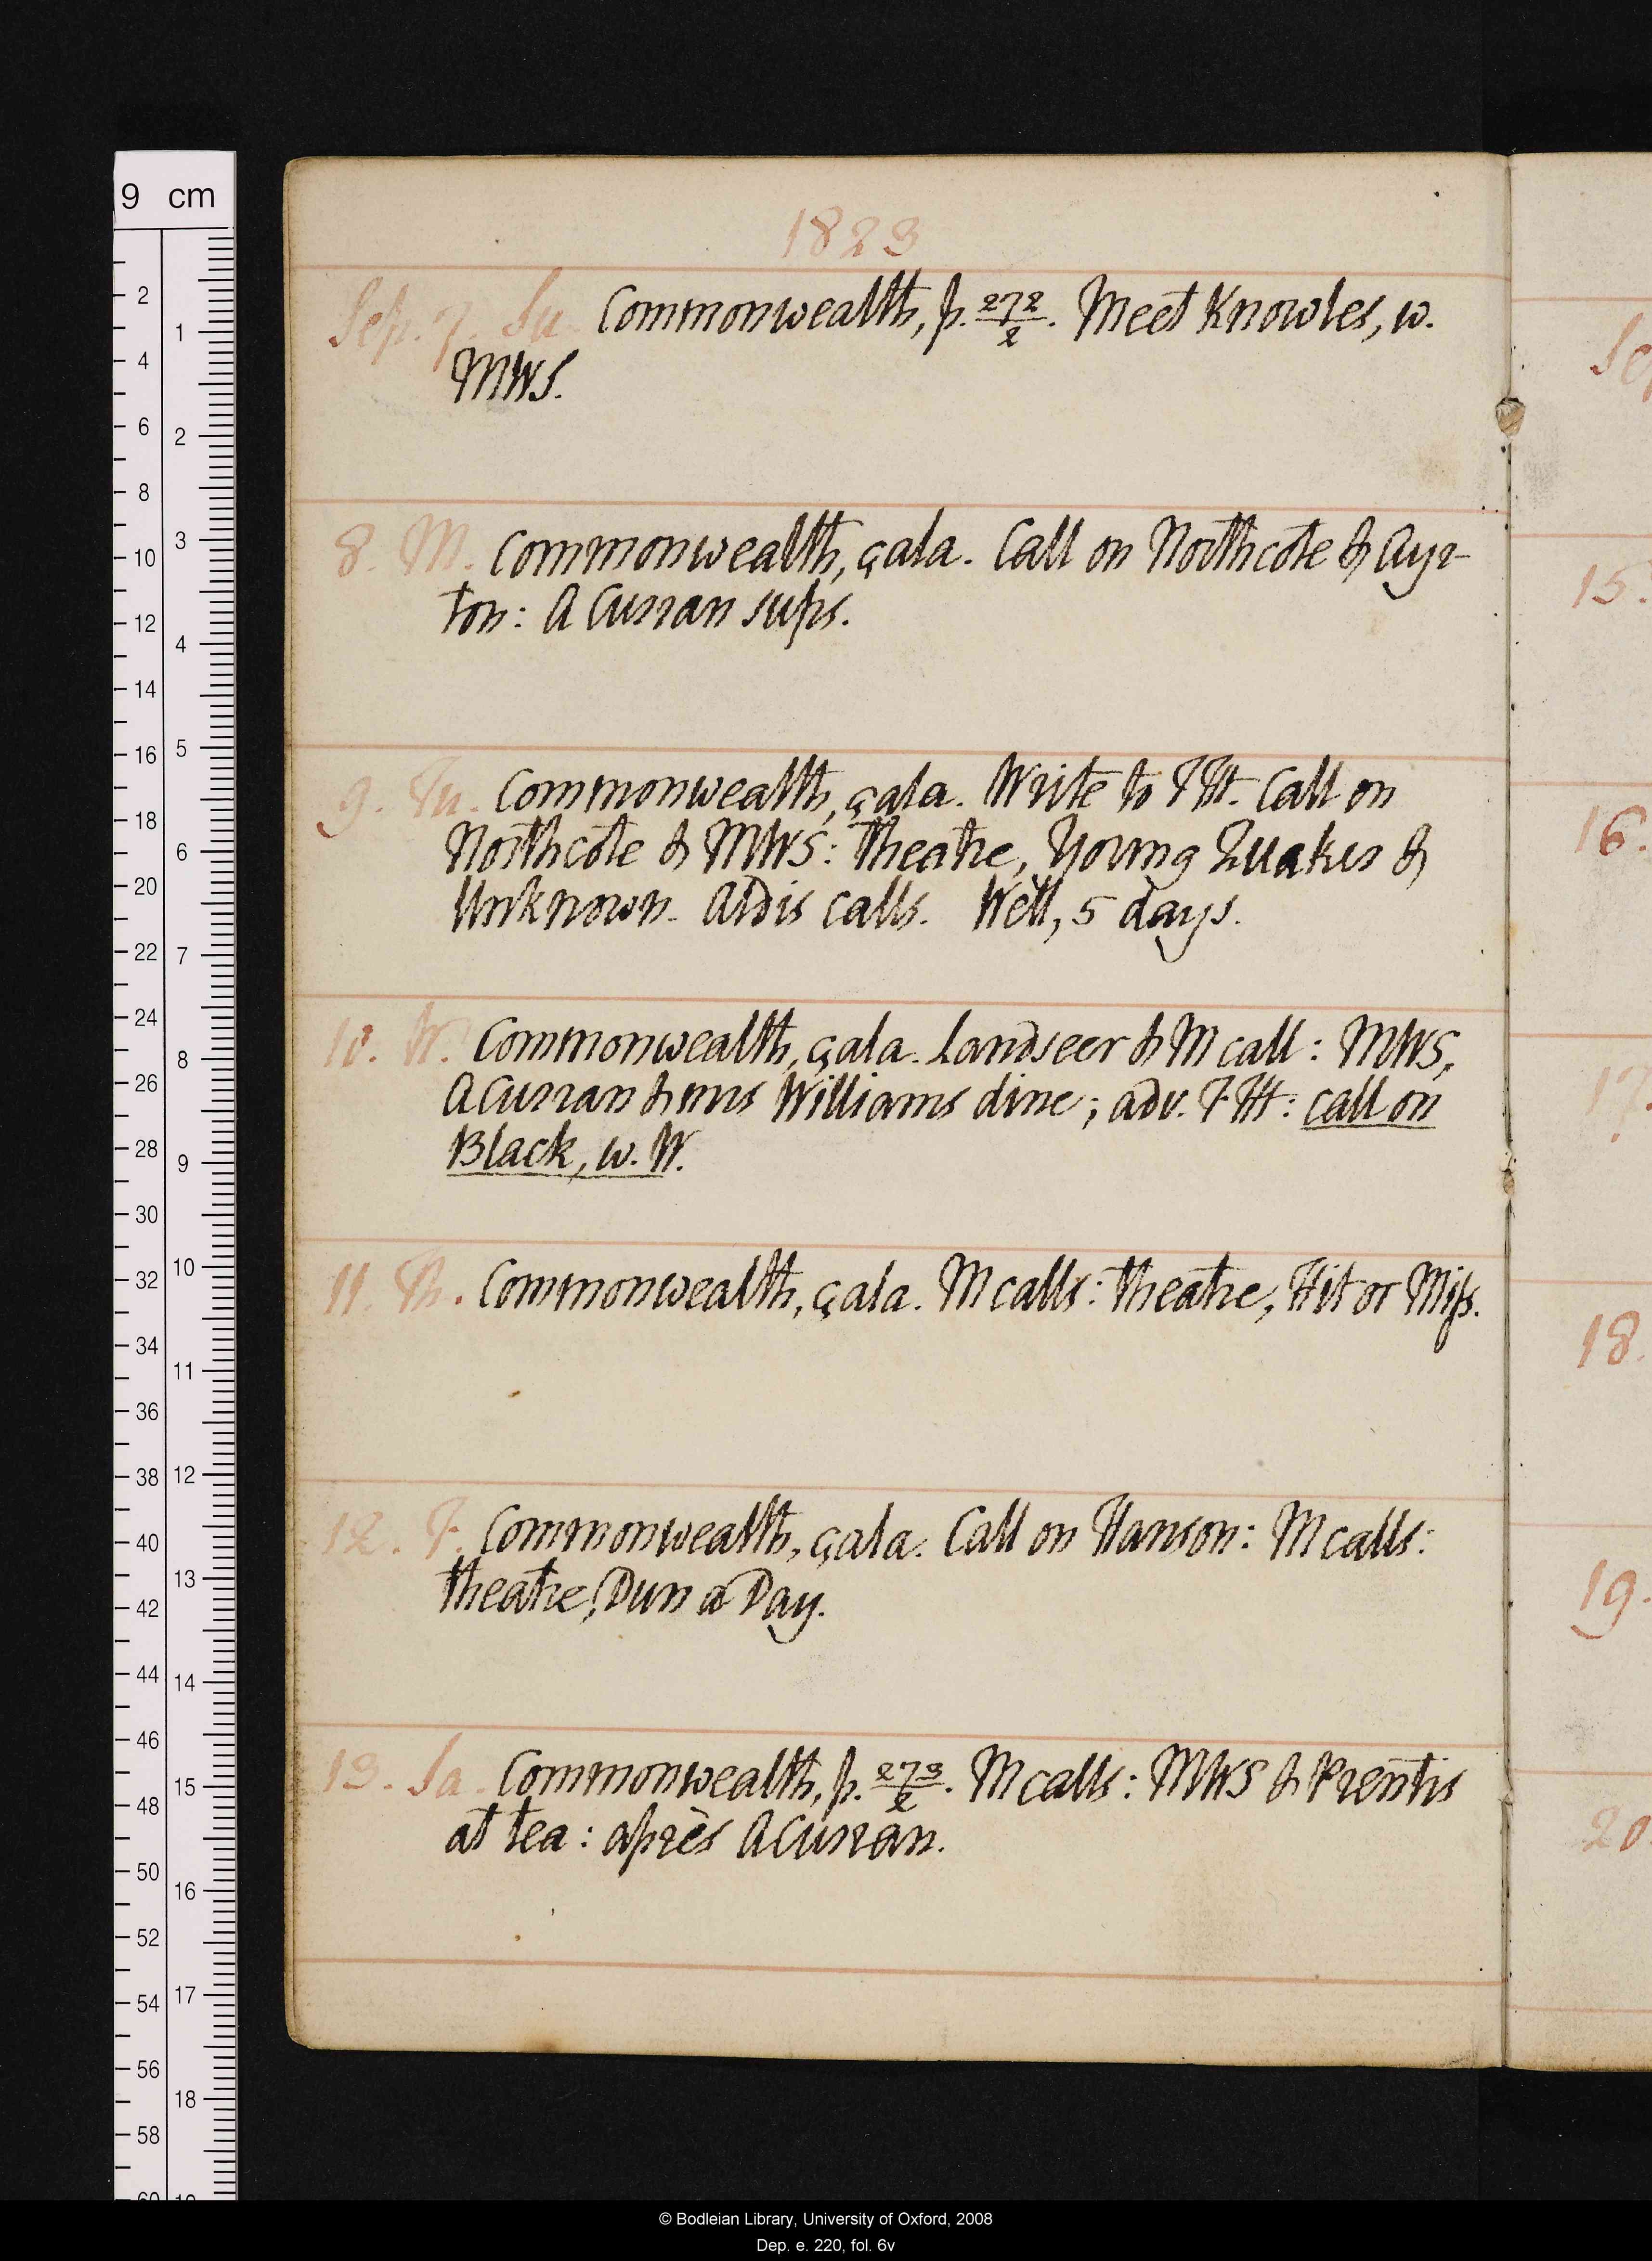 1823
Sep. 7. Su. Commonwealth, p. 272/2. Meet Knowles, w.
MWS.
8. M. Commonwealth, çala. Call on Northcote & Ayr-
ton: A Curran sups.
9. Tu. Commonwealth, çala. Write to THt. Call on
Northcote & MWS: theatre, Young Quaker &
Unknown. Aldis calls. Well, 5 days.
10. W. Commonwealth, çala. Landseer & M call: MWS,
A Curran & mrs Williams dine; adv. THt: call on
Black, w. W.
11. Th. Commonwealth, çala. M calls: theatre, Hit or Miss.
12. F. Commonwealth, çala. Call on Hanson: M calls:
theatre, Dun a Day.
13. Sa. Commonwealth, p. 273/2. M calls: MWS & Prentis
at tea: après A Curran.
Sep
15.
16.
17.
18.
19.
20
9 cm
2
4
6
8
10
12
14
16
18
20
22
24
26
28
30
32
34
36
38
40
42
44
46
48
50
52
54
56
58
60
1
2
3
4
5
6
7
8
9
10
11
12
13
14
15
16
17
18
19
© Bodleian Library, University of Oxford, 2008
Dep. e. 220, fol. 6v